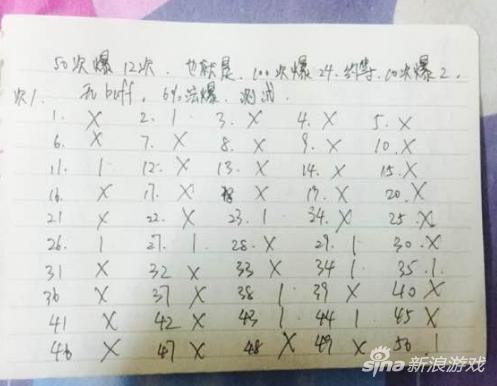 50次爆12次. 也就是. 100次爆24. 约等. 10次爆2.
次1. 无buff. 6%法爆. 测试.
1. X 2. 1 3. X 4. X 5. X
6. X 7. X 8. X 9. X 10. X
11. 1 12. X 13. X 14. X 15. X
16. X 17. X 18 X 19. X 20. X
21 X 22. X 23. 1 24. X 25. X
26. 1 27. 1 28. X 29. 1 30. X
31 X 32 X 33 X 34 1 35. 1
36 X 37 X 38 1 39 X 40 X
41 X 42 X 43 1 44 1 45 X
46 X 47 X 48 X 49 X 50 1
sina 新浪游戏